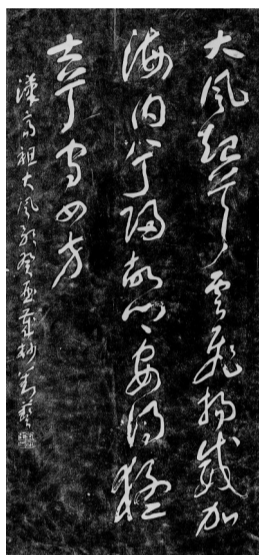 大風起兮雲飛揚威加
海内兮歸故鄉安得猛
士兮守四方
漢高祖大風歌癸酉